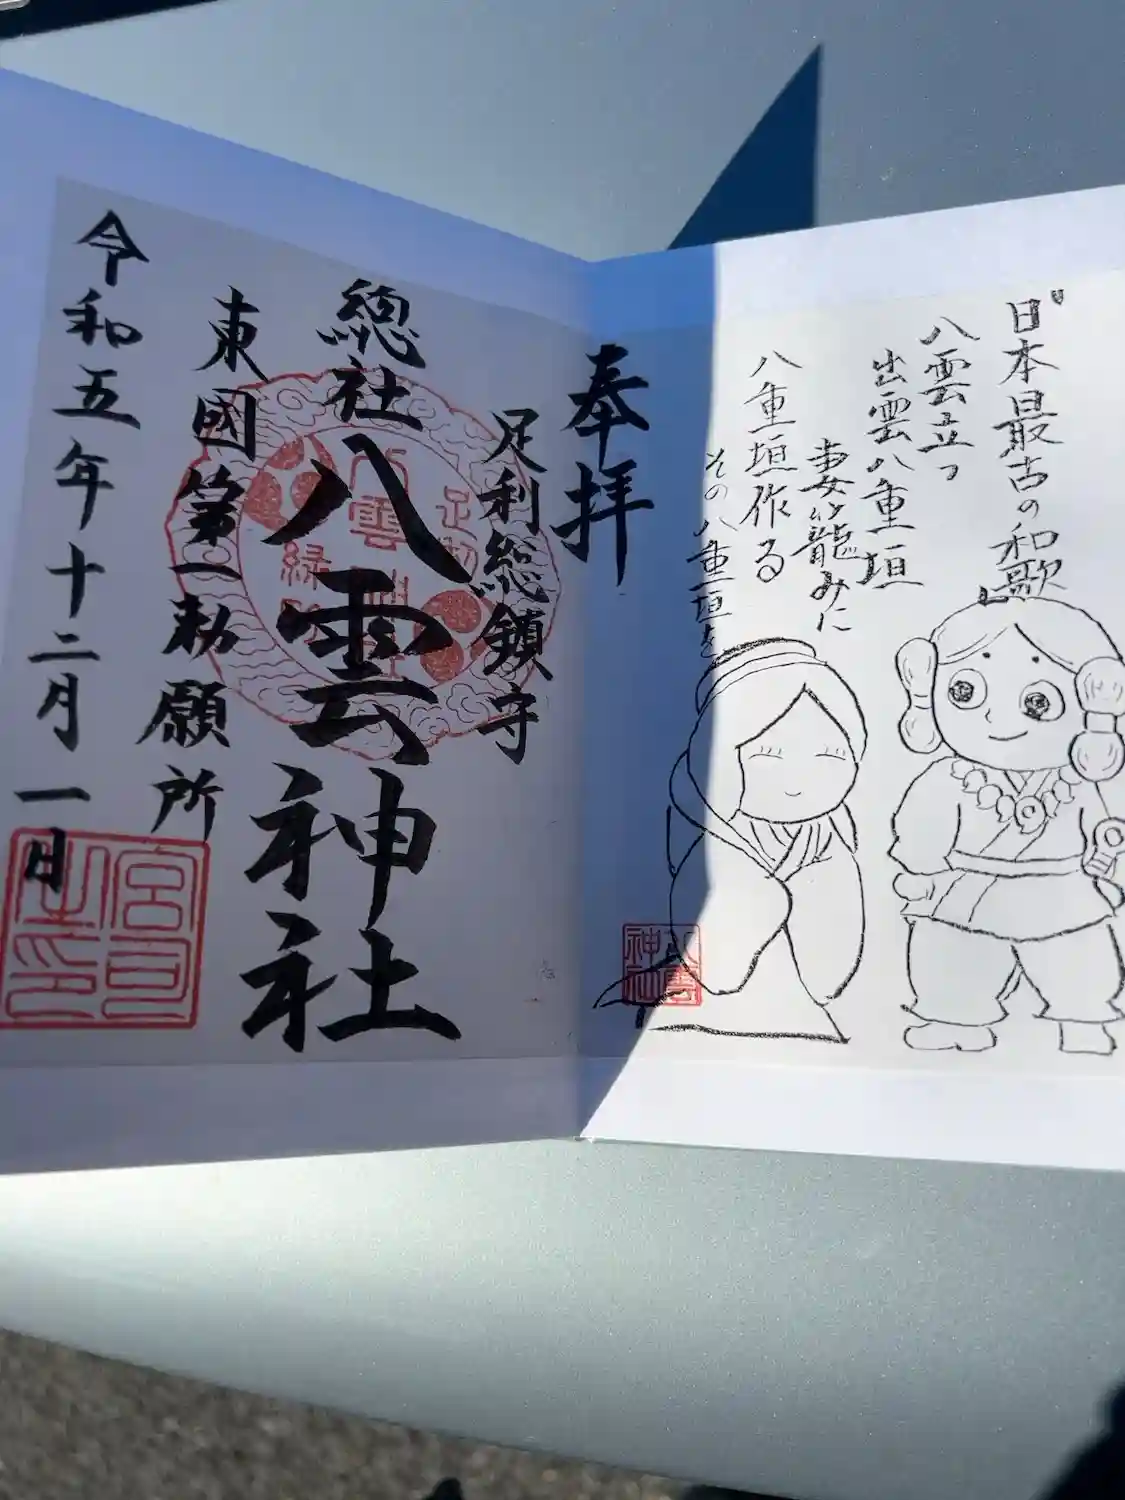 日本最古の和歌
八雲立つ
出雲八重垣
妻籠みに
八重垣作る
その八重垣を
八雲
神社
奉拝
足利総鎮守
總社
八雲神社
東國第一勅願所
令和五年十二月一日
宮司
之印